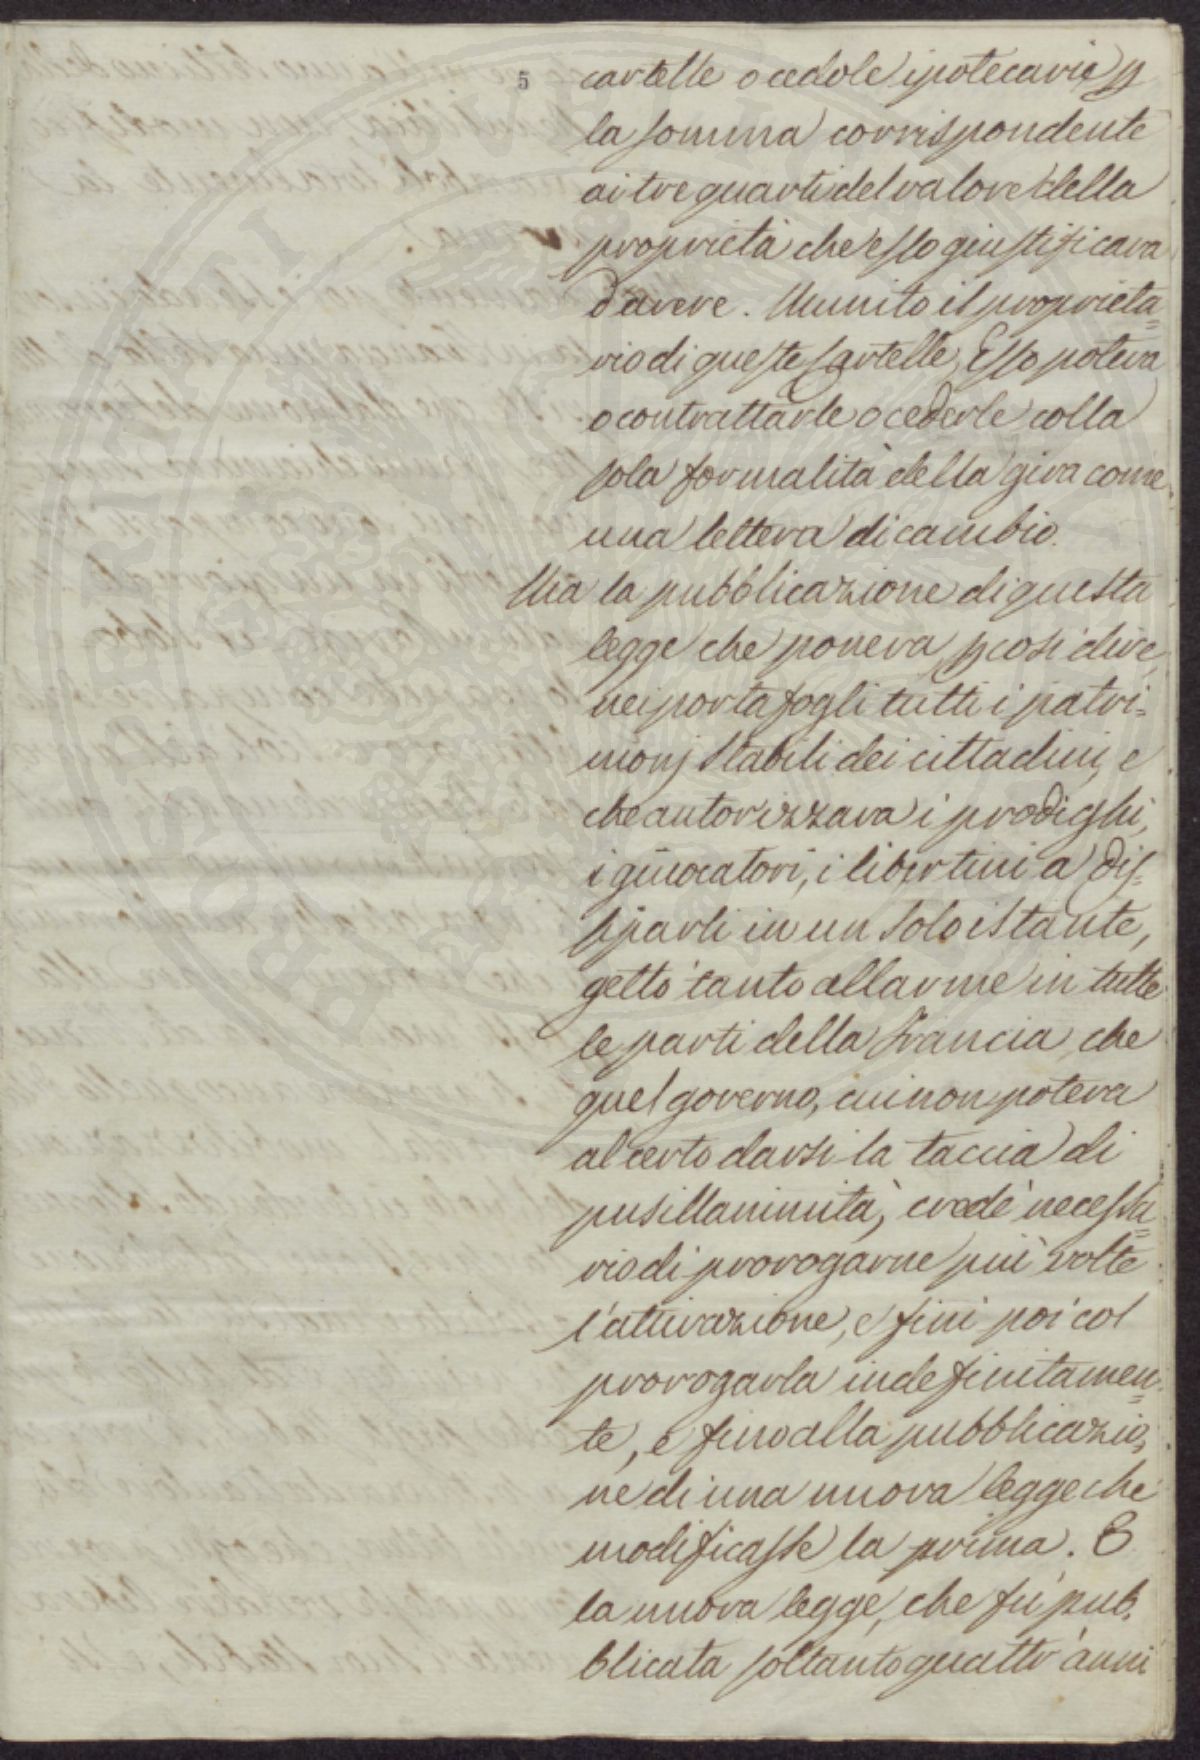 5
cartelle o cedole ipotecarie p
la somma corrispondente
ai tre quarti del valore della
proprietà che esso giustificava
d'avere. Munito il proprieta=
rio di queste Cartelle, Esso poteva
o contrattarle o cederle colla
sola formalità della gira come
una lettera di cambio.
Ma la pubblicazione di questa
legge che poneva, p così dire,
nei portafogli tutti i patri=
monj stabili dei cittadini, e
che autorizzava i prodighi,
i giuocatori, i libertini a dis=
siparli in un solo istante,
gettò tanto allarme in tutte
le parti della Francia, che
quel governo, cui non poteva
al certo darsi la taccia di
pusillanimità, credè necessa=
rio di prorogarne più volte
l'attivazione, e finì poi col
prorogarla indefinitamen=
te, e fino alla pubblicazio=
ne di una nuova legge che
modificasse la prima. E
la nuova legge, che fù pub=
blicata soltanto quattr'anni
PRIORITATI PUBLICAE PROSPERITATI